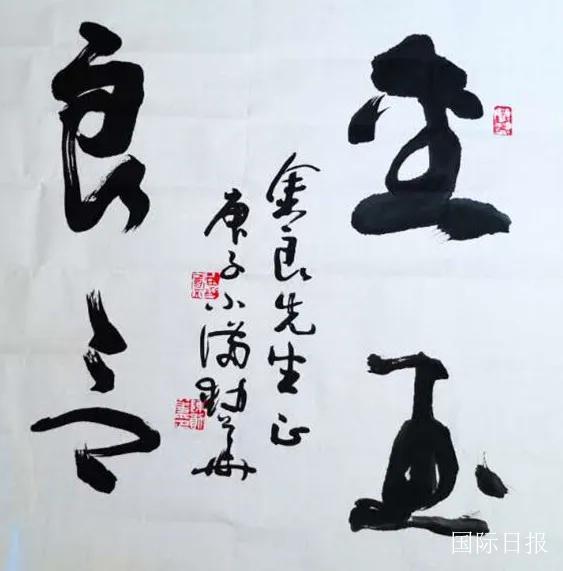 金玉
良言
金良先生正
庚子小满
国际日报